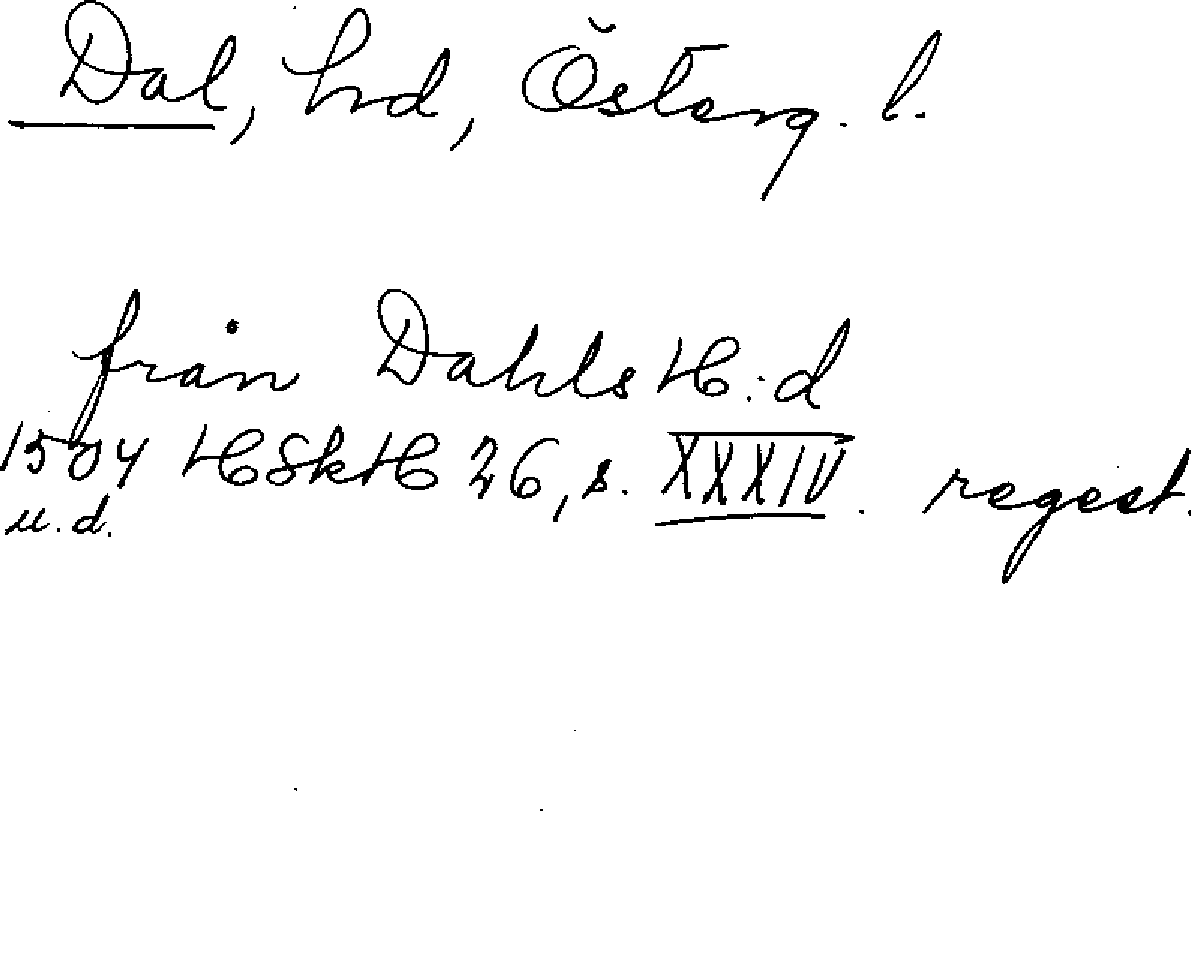 Dal, hd, Österg. l.
från Dahls H:d
1504 HSkH 26, s. XXXIV. regest.
u.d.